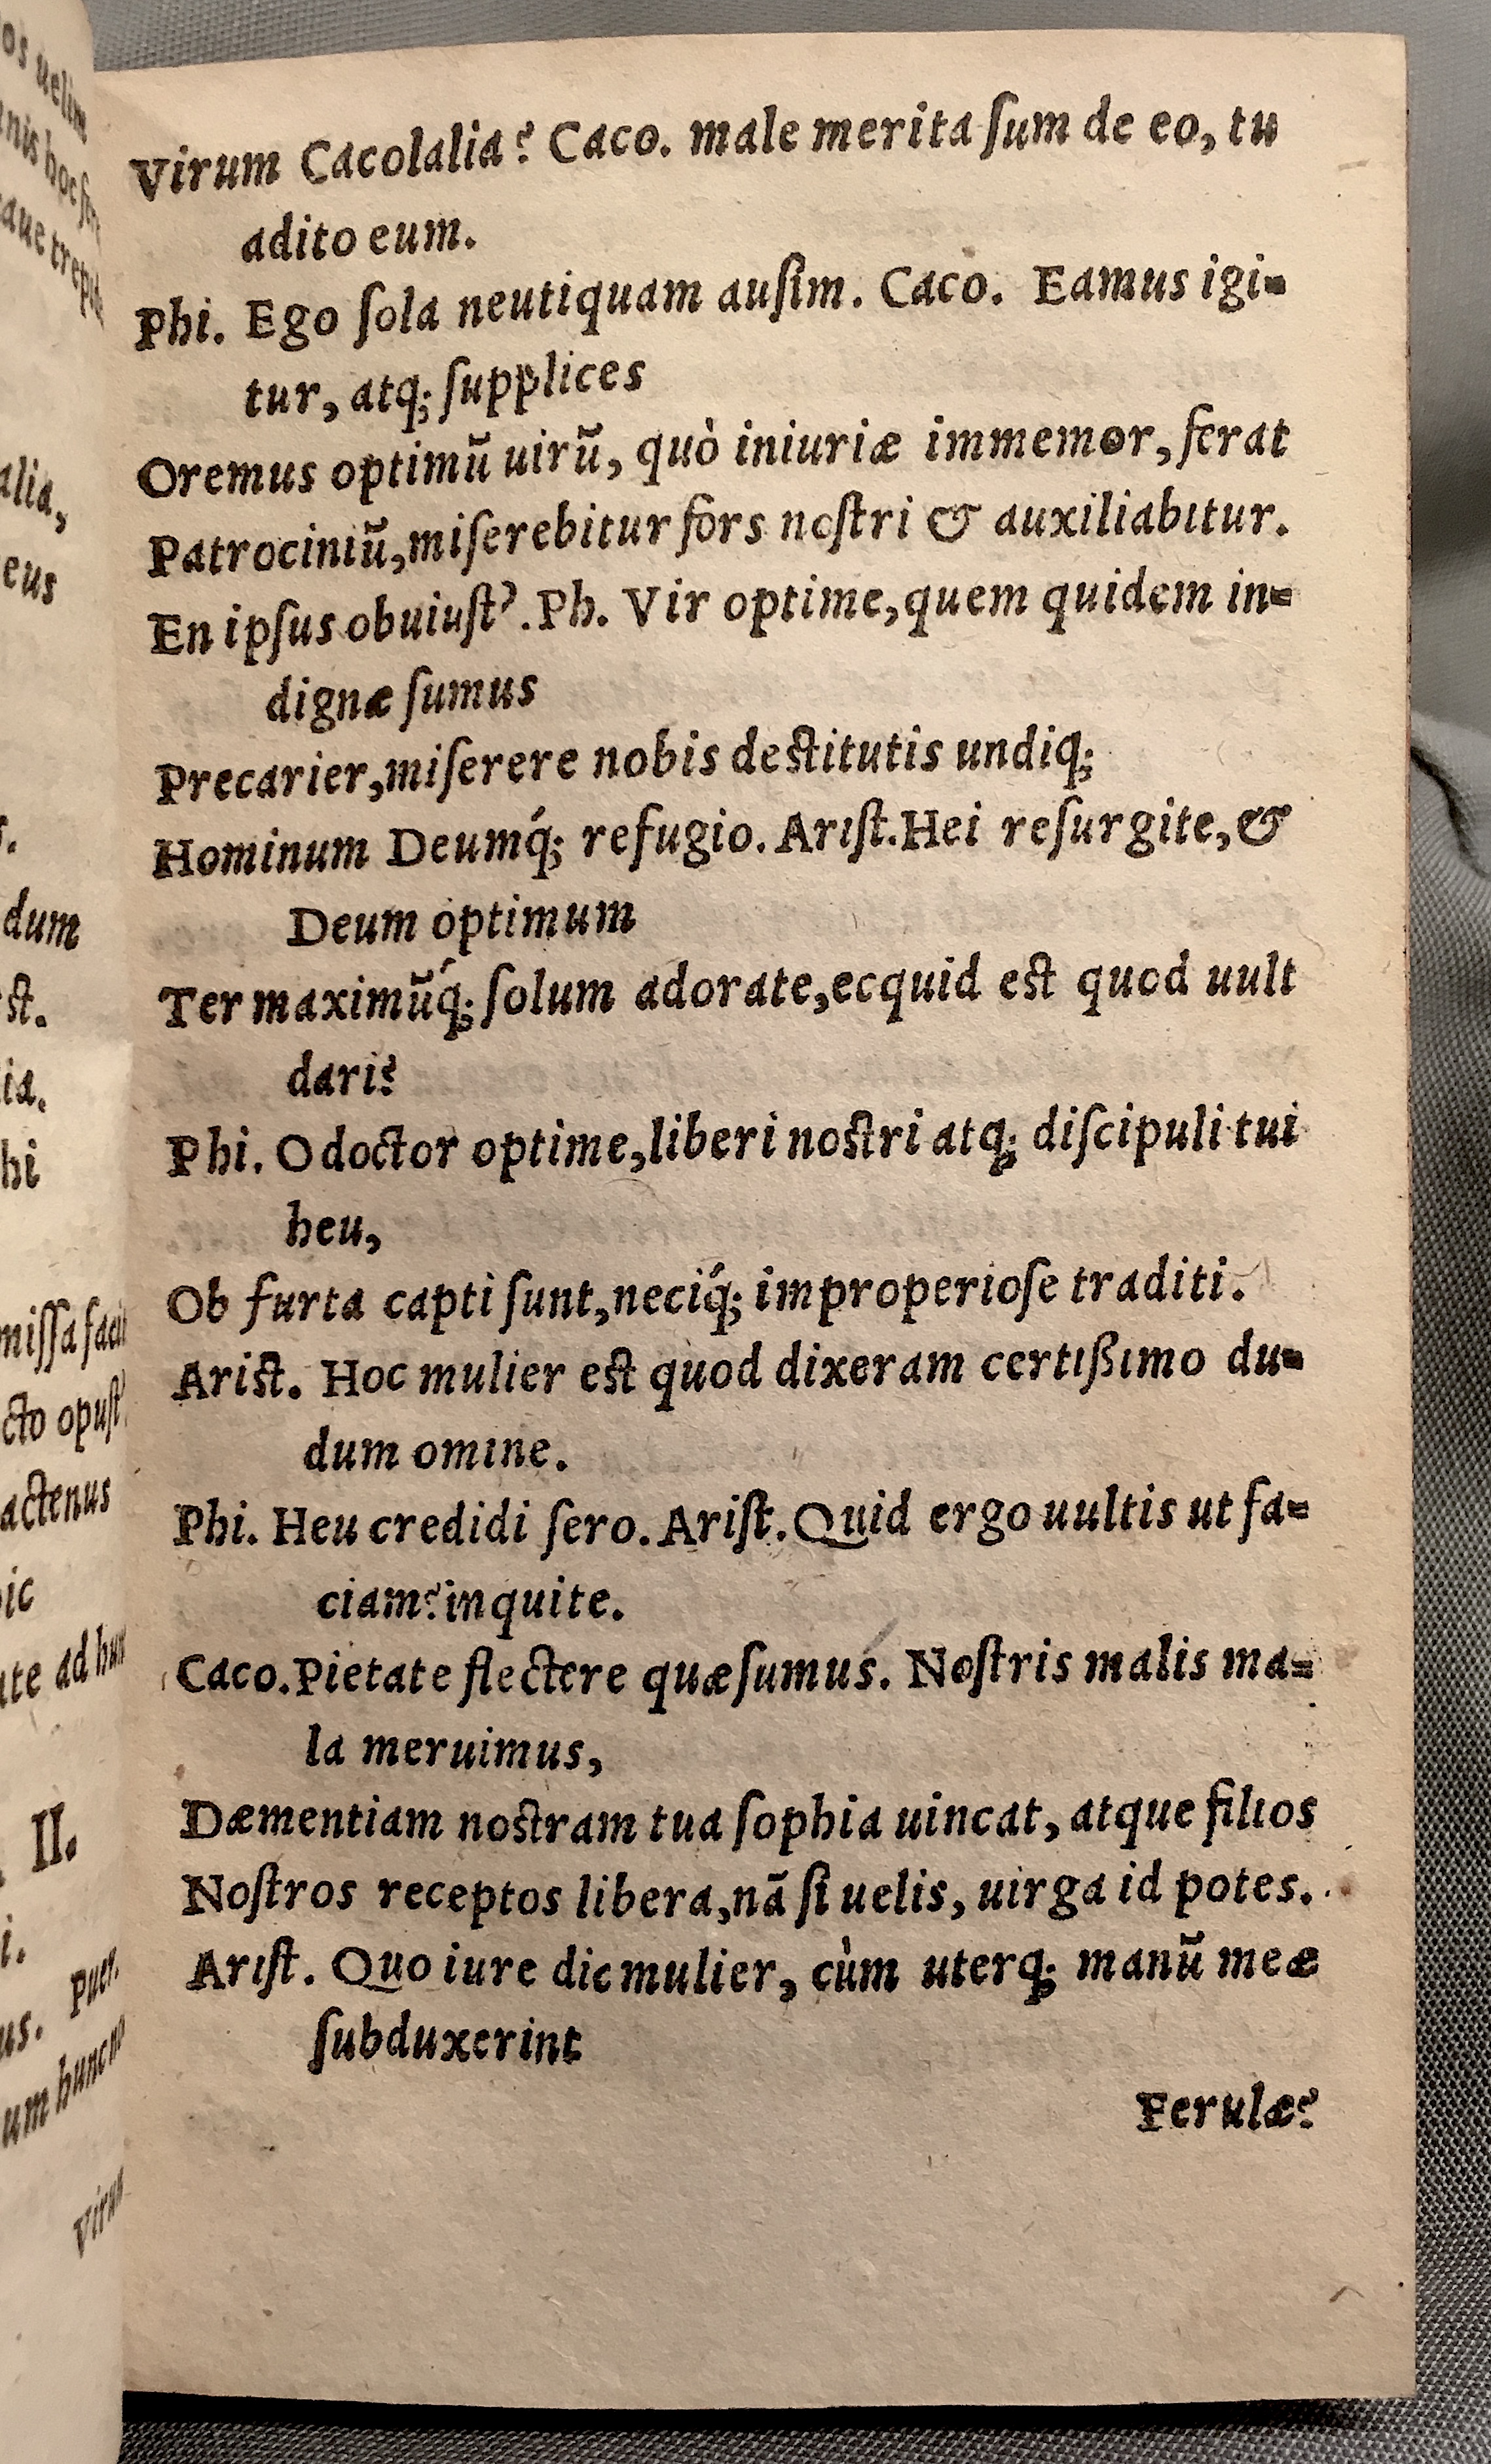 Virum Cacolalia? Caco. male merita ſum de eo, tu
adito eum.
Phi. Ego ſola neutiquam auſim. Caco. Eamus igi-
tur, atq; ſupplices
Oremus optimũ uirũ, quò iniuriæ immemor, ferat
Patrociniũ, miſerebitur fors noſtri & auxiliabitur.
En ipſus obuiuſt'. Ph. Vir optime, quem quidem in-
dignæ ſumus
Precarier, miſerere nobis deſtitutis undiq;
Hominum Deumq́; refugio. Ariſt. Hei reſurgite, &
Deum optimum
Ter maximũq́; ſolum adorate, ecquid eſt quod uult
dari?
Phi. O doctor optime, liberi noſtri atq; diſcipuli tui
heu,
Ob furta capti ſunt, neciq́; improperioſe traditi.
Ariſt. Hoc mulier eſt quod dixeram certißimo du-
dum omine.
Phi. Heu credidi ſero. Ariſt. Quid ergo uultis ut fa-
ciam? inquite.
Caco. Pietate flectere quæſumus. Noſtris malis ma-
la meruimus,
Dæmentiam noſtram tua ſophia uincat, atque filios
Noſtros receptos libera, nã ſi uelis, uirga id potes.
Ariſt. Quo iure dic mulier, cùm uterq; manũ meæ
ſubduxerint
Ferulæ?